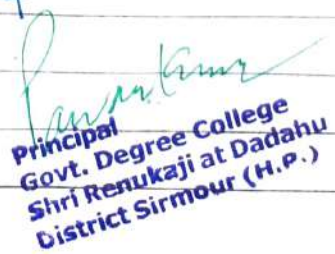 Principal
Govt. Degree College
Shri Renukaji at Dadahu
District Sirmour (H.P.)